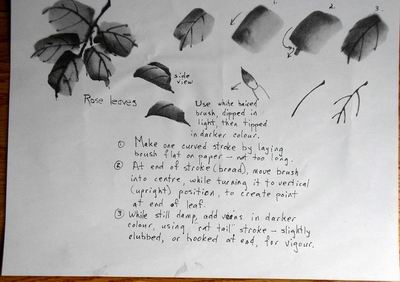 1.
2.
3.
side
view
Rose leaves
Use white haired
brush, dipped in
light, then tipped
in darker colour.
① Make one curved stroke by laying
brush flat on paper - not too long.
② At end of stroke (broad), move brush
into centre, while turning it to vertical
(upright) position, to create point
at end of leaf.
③ While still damp, add veins in darker
colour, using "rat tail" stroke - slightly
clubbed, or hooked at end, for vigour.